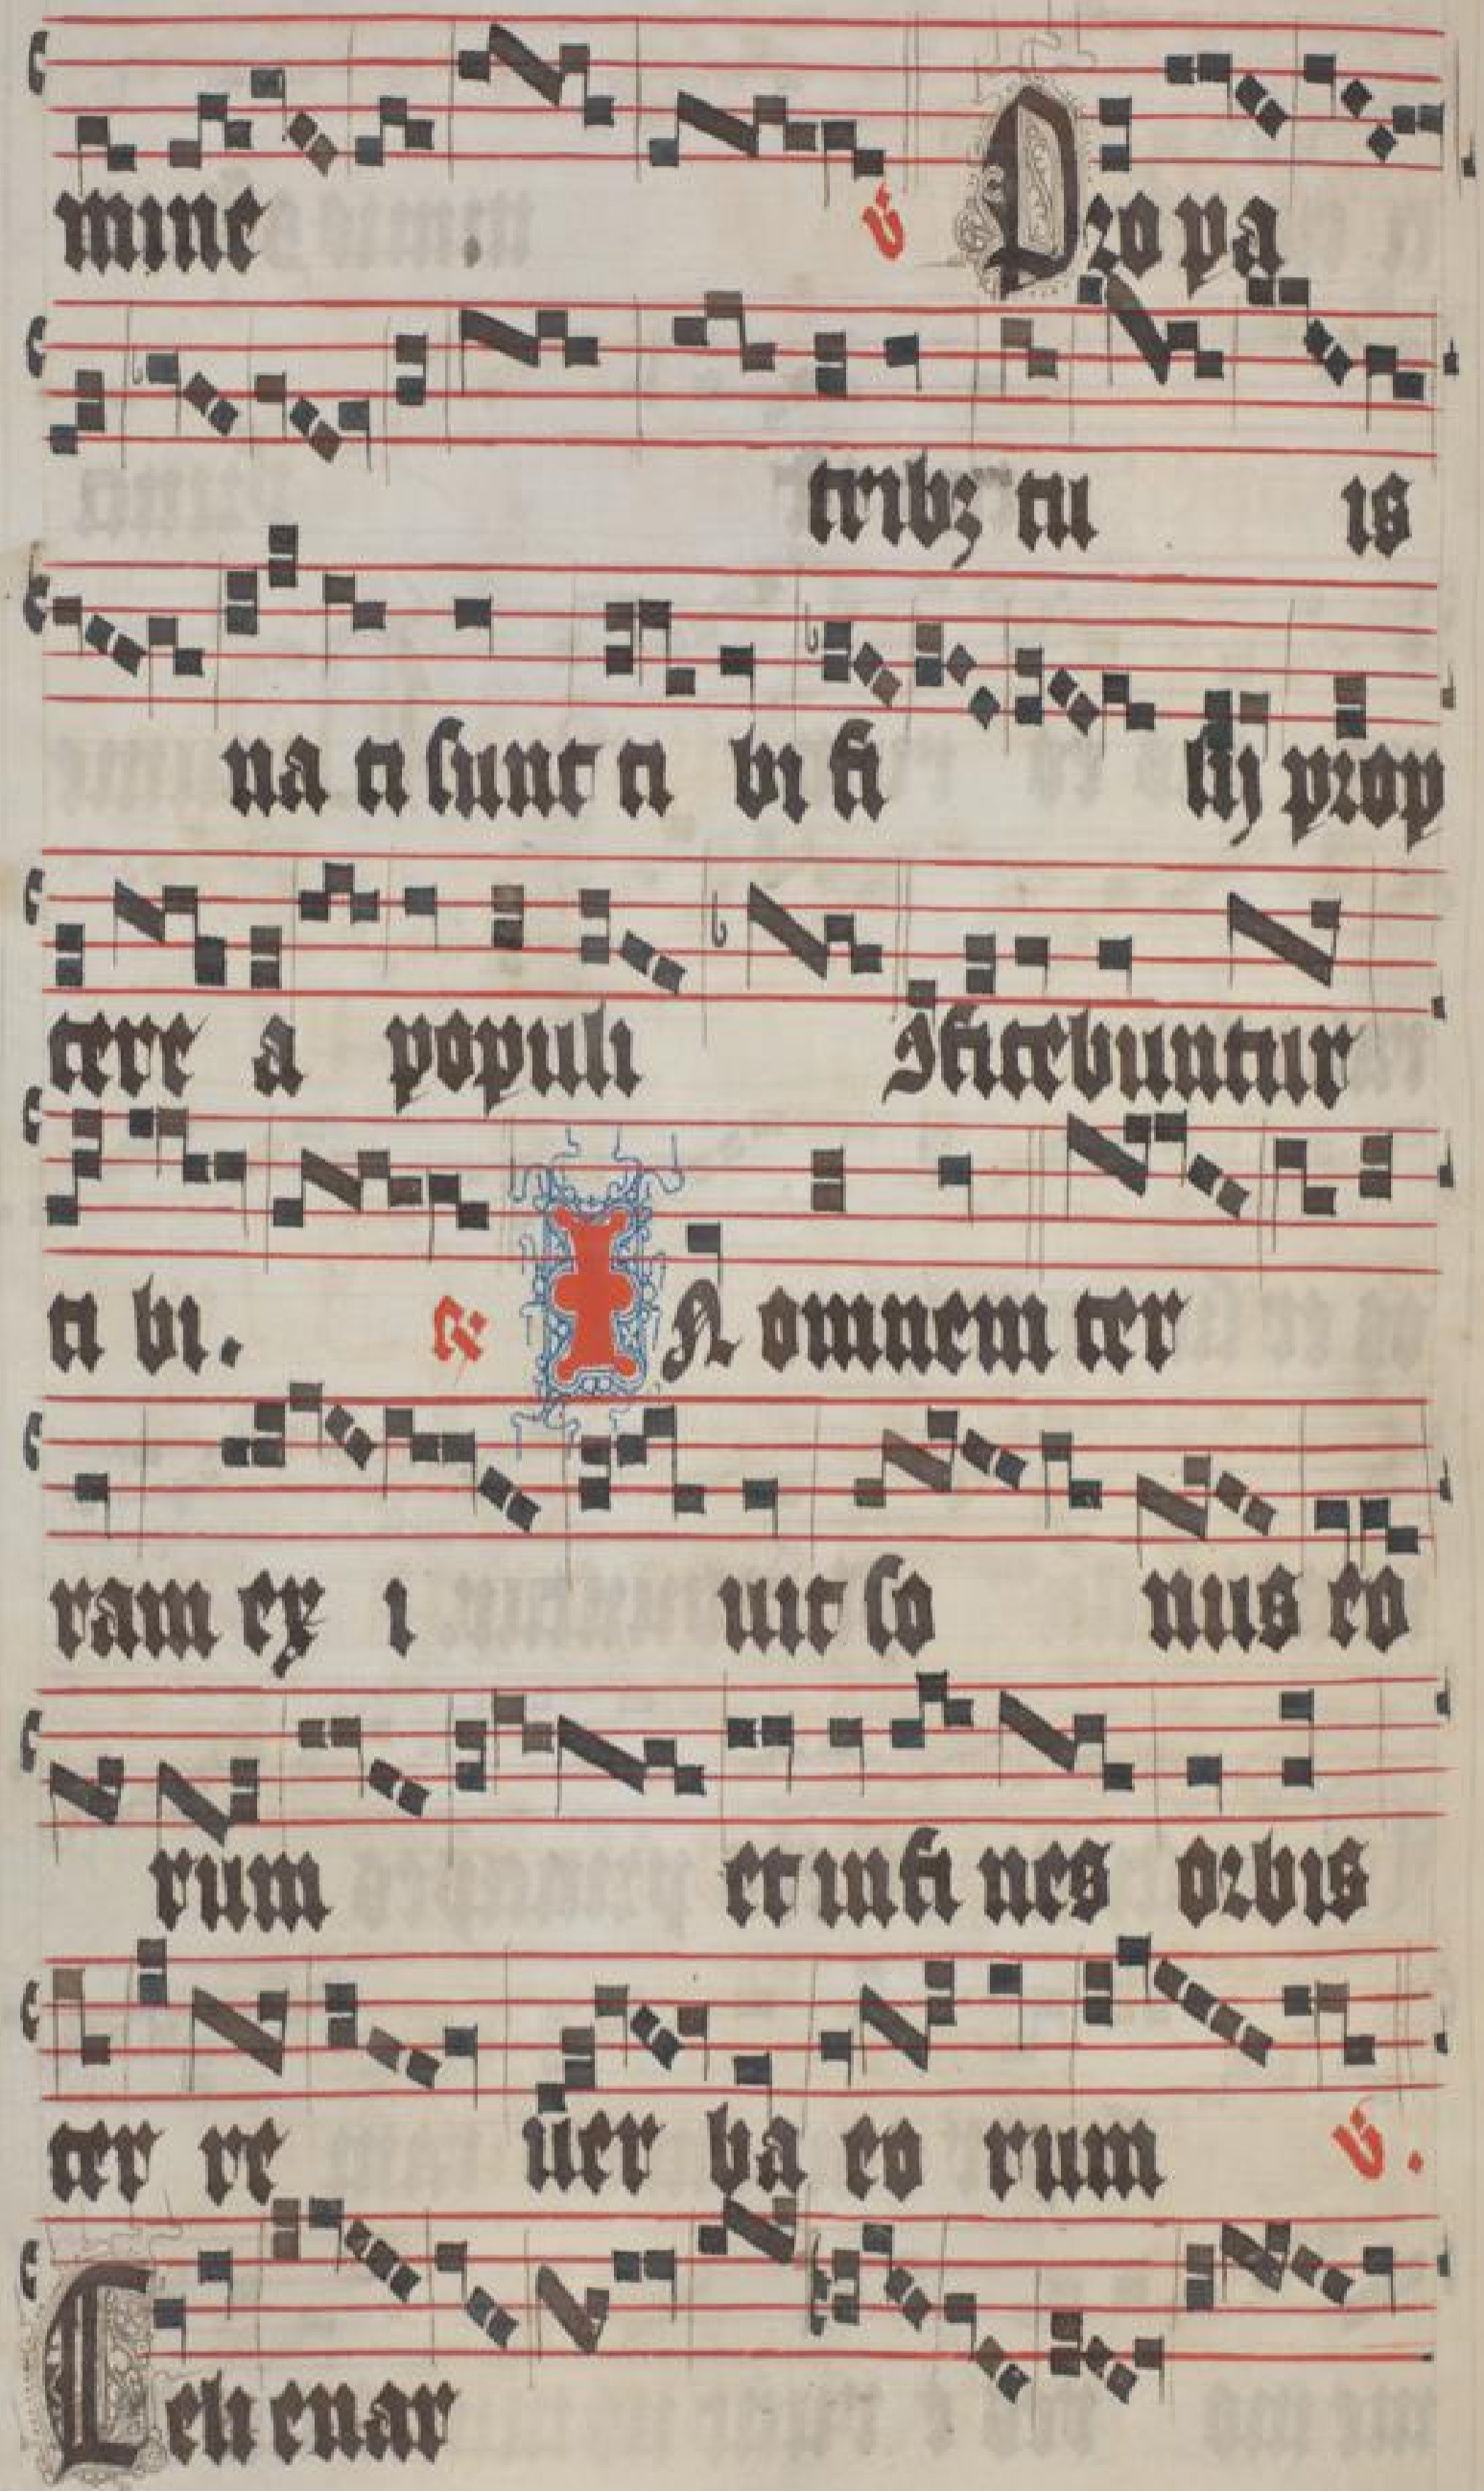 mine . v̇ Pro pa
tribꝫ tu is
na ti sunt ti bi fi lij prop
tere a populi ꝯfitebuntur
ti bi. ℟ IN omnem ter
ram ex i uit so nus eo
rum et in fi nes orbis
ter re uer ba eo rum v̇.
Celi enar